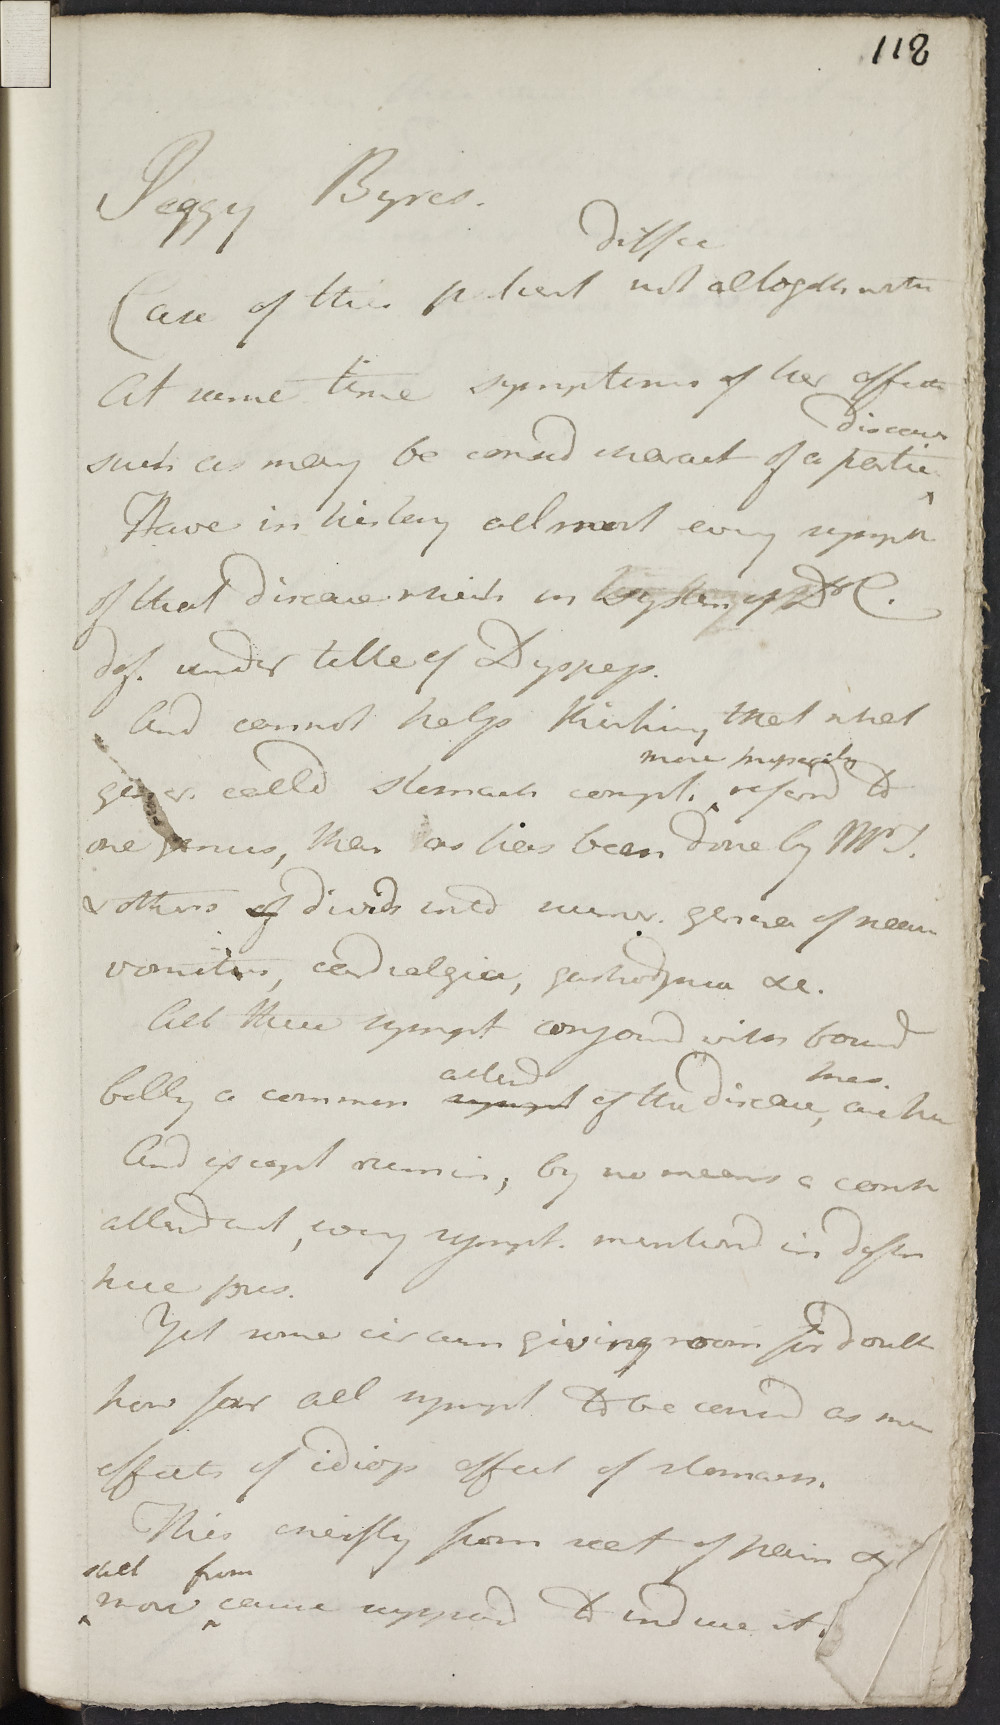 118
Peggy Byres.
diffic
Case of this patient not altogether witho
At same time symptoms of her affect
disease
such as may be consid charact of a partic
Have in history allmost every sympt
of that disease which in system of Dr C.
def. under title of Dyspeps.
And cannot help thinking that what
more properly
gener. called stomach compl. referd to
one genus, than as has been done by Mr S.
& others of divid into numer. genera of
vomitus, cardialgia, gastrodynia &c.
All these sympt conjoind with bound
attend
belly a common sympt of the disease, are here
And except rumin, by no means a const
attendant, every sympt. mentiond in defin
here pres.
Yet some circum giving room for doubt
how far all sympt to be consid as mere
effects of idiop affect of stomach.
This chiefly from seat of pain &
still from
more cause supposd to induce it.